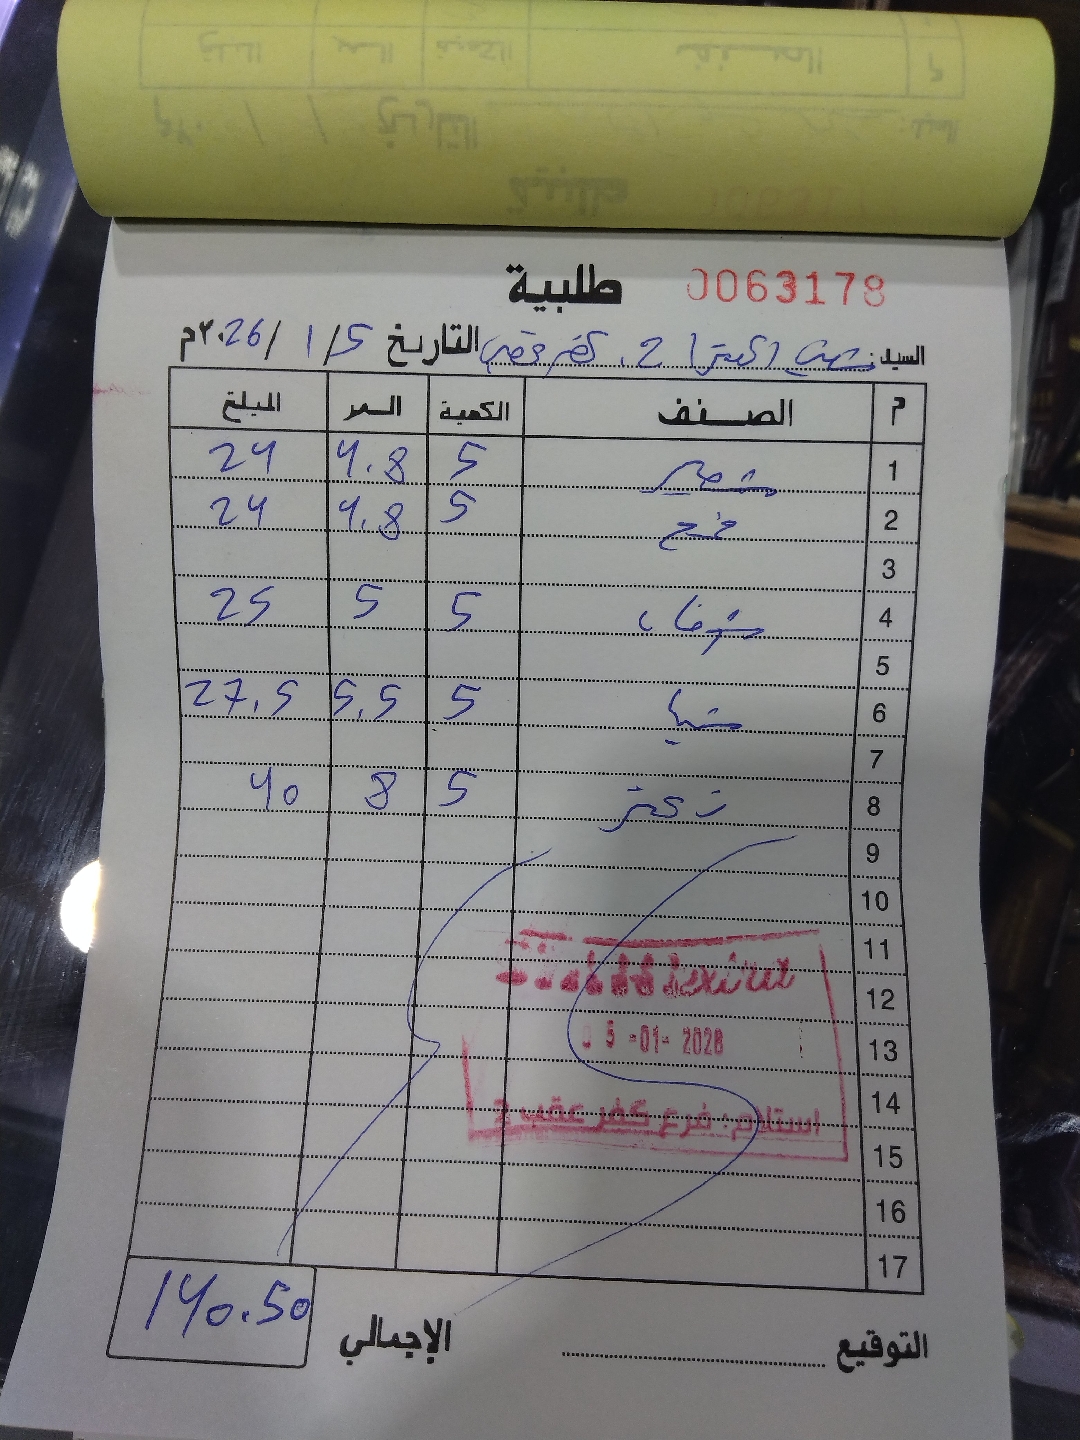 طلبية 0063178
السيد: 2 كفر عقب التاريخ 5/ 1 /2026م
م الصنف الكمية السعر المبلغ
1 5 4.8 24
2 5 4.8 24
3
4 شوفان 5 5 25
5
6 5 5.5 27.5
7
8 5 8 40
9
10
11
12
13
14
15
16
17
05 -01- 2026
استلام: فرع كفر عقب 2
التوقيع الإجمالي 140.50